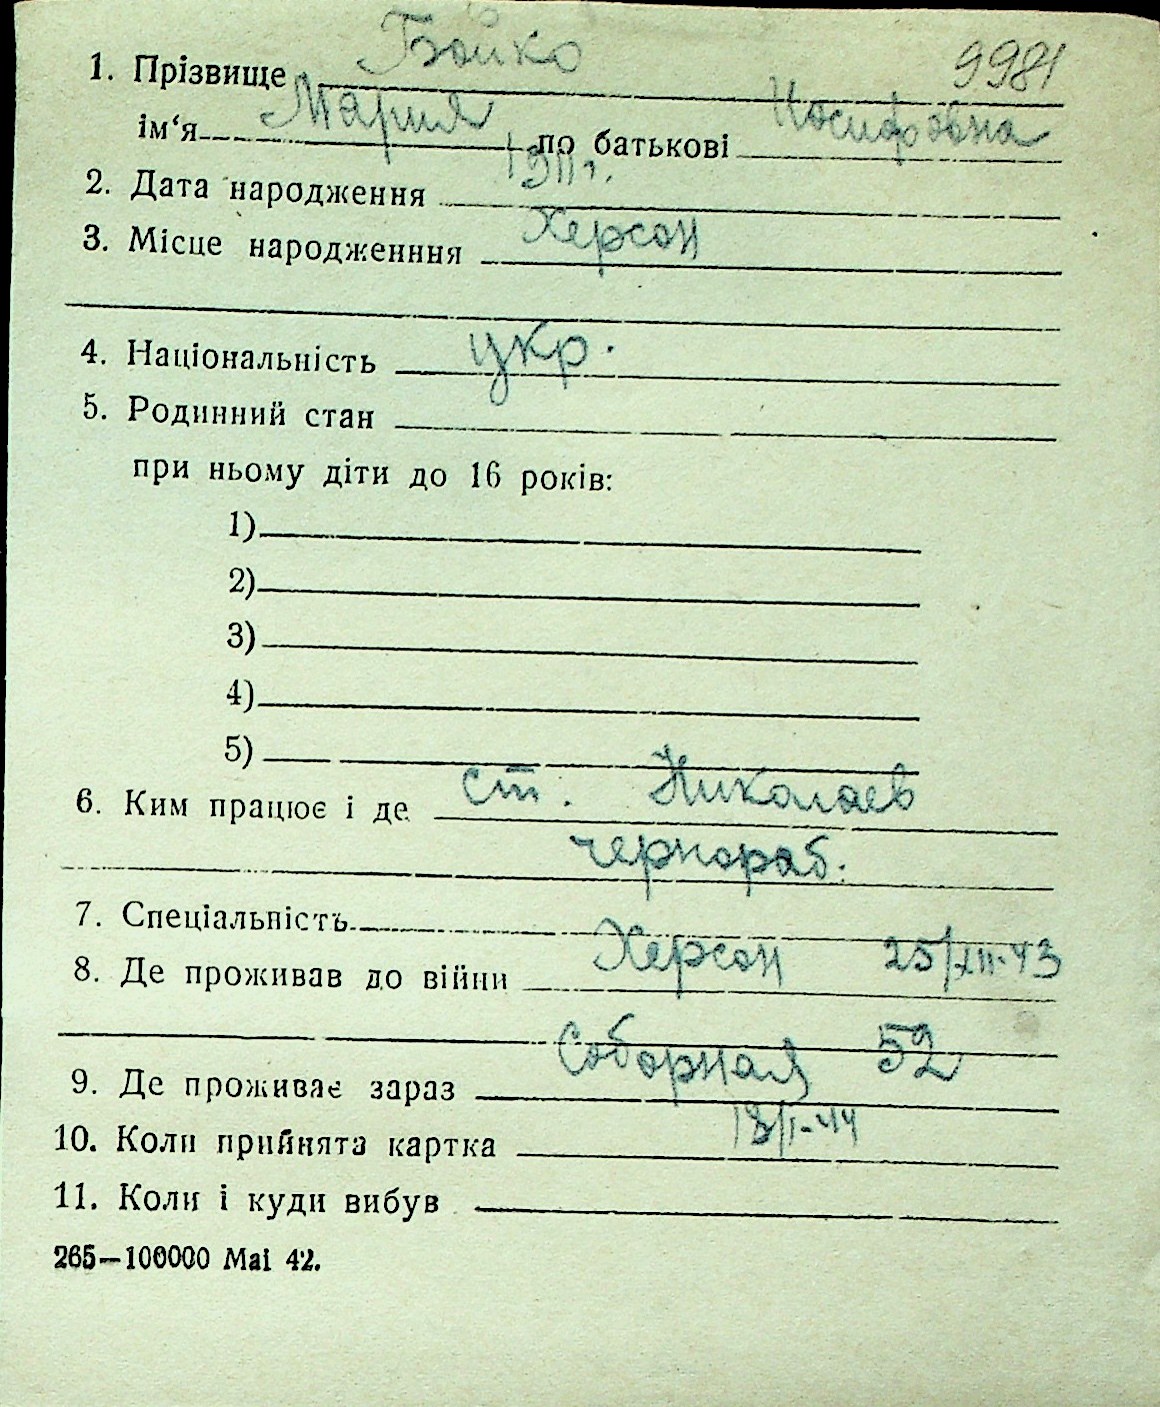 1. Прізвище Бойко 9981
ім‘я Мария по батькові Иосифовна
2. Дата народження 1911 г.
3. Місце народженння Херсон
4. Національність укр.
5. Родинний стан
при ньому діти до 16 років:
1)
2)
3)
4)
5)
6. Ким працює і де ст. Николаев
чернораб.
7. Спеціальність
8. Де проживав до війни Херсон 25/XII-43
9. Де проживає зараз Соборная 52
10. Коли прийнята картка 18/I-44
11. Коли і куди вибув
265—100000 Mai 42.